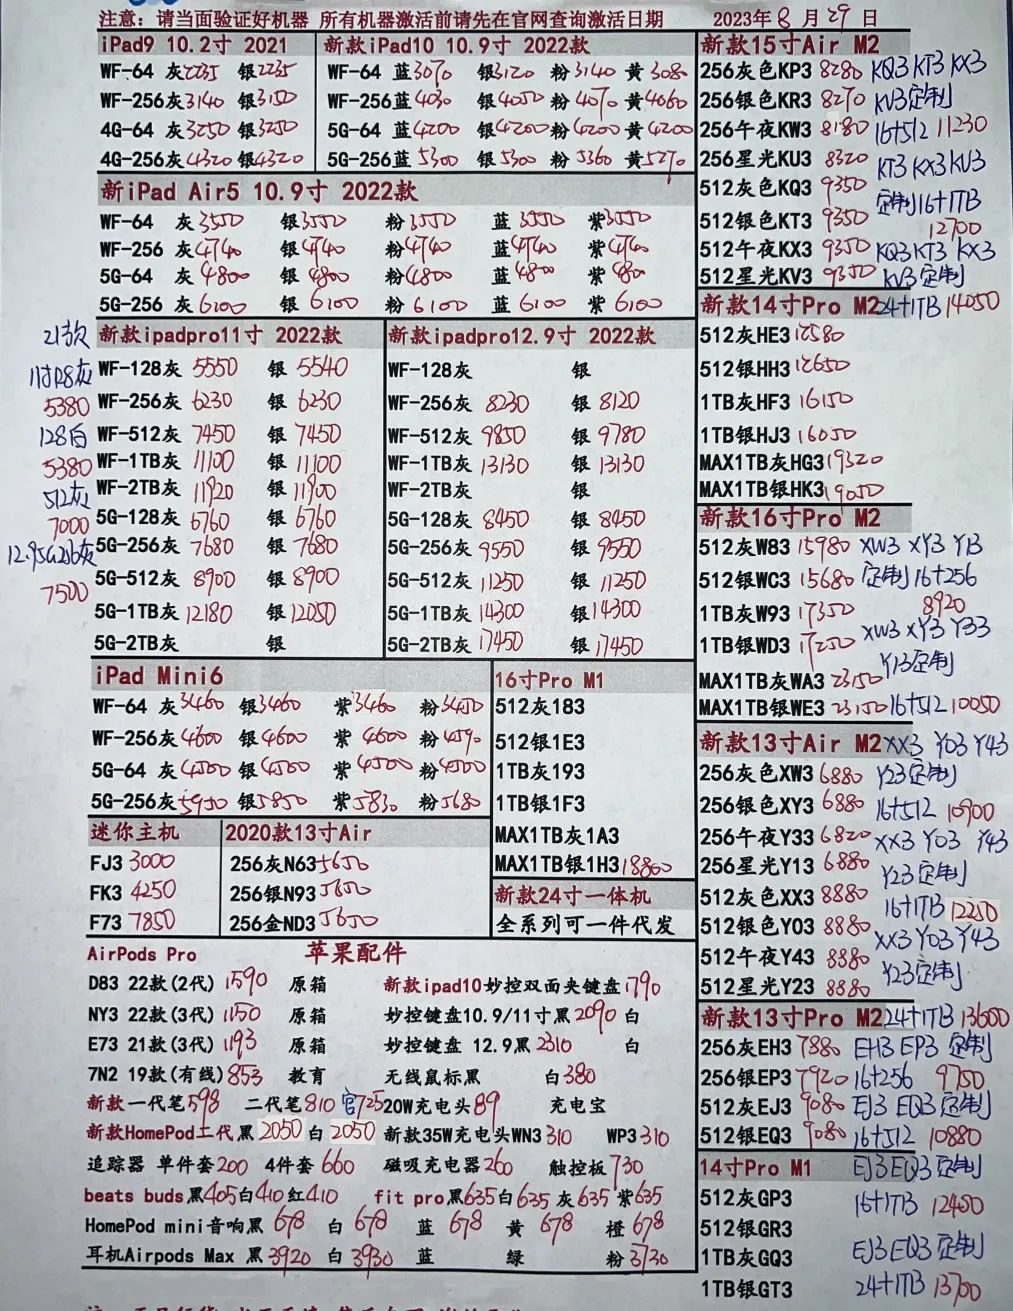 注意：请当面验证好机器 所有机器激活前请先在官网查询激活日期
2023年8月29日
iPad9 10.2寸 2021
WF-64 灰2235 银2235
WF-256灰3140 银3150
4G-64 灰3250 银3250
4G-256灰4320 银4320
新款iPad10 10.9寸 2022款
WF-64 蓝3070 银3120 粉3140 黄3080
WF-256蓝4030 银4050 粉4070 黄4060
5G-64 蓝4200 银4200 粉4200 黄4200
5G-256蓝5300 银5300 粉5360 黄5270
新iPad Air5 10.9寸 2022款
WF-64 灰3550 银3550 粉3550 蓝3550 紫3550
WF-256 灰4740 银4740 粉4740 蓝4740 紫4740
5G-64 灰4800 银4800 粉4800 蓝4800 紫4800
5G-256 灰6100 银6100 粉6100 蓝6100 紫6100
21款
11寸128灰
5380
128白
5380
512灰
7000
12.95G256灰
7500
新款ipadpro11寸 2022款
WF-128灰 5550 银 5540
WF-256灰 6230 银 6230
WF-512灰 7450 银 7450
WF-1TB灰 11100 银 11100
WF-2TB灰 11920 银 11900
5G-128灰 6760 银 6760
5G-256灰 7680 银 7680
5G-512灰 8900 银 8900
5G-1TB灰 12180 银 12050
5G-2TB灰 银
新款ipadpro12.9寸 2022款
WF-128灰 银
WF-256灰 8230 银 8120
WF-512灰 9850 银 9780
WF-1TB灰 13130 银 13130
WF-2TB灰 银
5G-128灰 8450 银 8450
5G-256灰 9550 银 9550
5G-512灰 11250 银 11250
5G-1TB灰 14300 银 14300
5G-2TB灰 17450 银 17450
iPad Mini6
WF-64 灰3460 银3460 紫3460 粉3450
WF-256灰4600 银4600 紫4600 粉4590
5G-64 灰4500 银4500 紫4500 粉4500
5G-256灰5950 银5850 紫5830 粉5680
16寸Pro M1
512灰183
512银1E3
1TB灰193
1TB银1F3
MAX1TB灰1A3
MAX1TB银1H3 18800
迷你主机
FJ3 3000
FK3 4250
F73 7850
2020款13寸Air
256灰N63 5650
256银N93 5650
256金ND3 5650
新款24寸一体机
全系列可一件代发
苹果配件
AirPods Pro
D83 22款(2代) 1590 原箱 新款ipad10妙控双面夹键盘1790
NY3 22款(3代) 1150 原箱 妙控键盘10.9/11寸黑2090 白
E73 21款(3代) 1193 原箱 妙控键盘 12.9黑2310 白
7N2 19款(有线) 853 教育 无线鼠标黑 白380
新款一代笔598 二代笔810 官725 20W充电头89 充电宝
新款HomePod二代黑2050 白2050 新款35W充电头WN3 310 WP3 310
追踪器 单件套200 4件套660 磁吸充电器260 触控板730
beats buds黑405白410红410 fit pro黑635白635灰635紫635
HomePod mini音响黑678 白678 蓝678 黄678 橙678
耳机Airpods Max 黑3920 白3930 蓝 绿 粉3730
新款15寸Air M2
256灰色KP3 8280 KQ3 KT3 KX3
256银色KR3 8270 KV3定制
256午夜KW3 8180 16+512 11230
256星光KU3 8320 KT3 KX3 KU3
512灰色KQ3 9350 定制16+1TB
512银色KT3 9350 12700
512午夜KX3 9350 KQ3 KT3 KX3
512星光KV3 9350 KV3定制
新款14寸Pro M2 24+1TB 14050
512灰HE3 12580
512银HH3 12650
1TB灰HF3 16150
1TB银HJ3 16050
MAX1TB灰HG3 19320
MAX1TB银HK3 19050
新款16寸Pro M2
512灰W83 15980 XW3 XY3 Y13
512银WC3 15680 定制16+256
8920
1TB灰W93 17350
XW3 XY3 Y33
1TB银WD3 17250 Y13定制
MAX1TB灰WA3 23150
MAX1TB银WE3 23150 16+512 10050
新款13寸Air M2 XX3 Y03 Y43
256灰色XW3 6880 Y23定制
256银色XY3 6880 16+512 10900
256午夜Y33 6820 XX3 Y03 Y43
256星光Y13 6880 Y23定制
512灰色XX3 8880 16+1TB 12250
512银色Y03 8880 XX3 Y03 Y43
512午夜Y43 8880 Y23定制
512星光Y23 8880
新款13寸Pro M2 24+1TB 13600
256灰EH3 7880 EH3 EP3 定制
256银EP3 7920 16+256 9750
512灰EJ3 9080 EJ3 EQ3 定制
512银EQ3 9080 16+512 10880
14寸Pro M1 EJ3 EQ3 定制
512灰GP3 16+1TB 12450
512银GR3
1TB灰GQ3 EJ3 EQ3 定制
1TB银GT3 24+1TB 13700